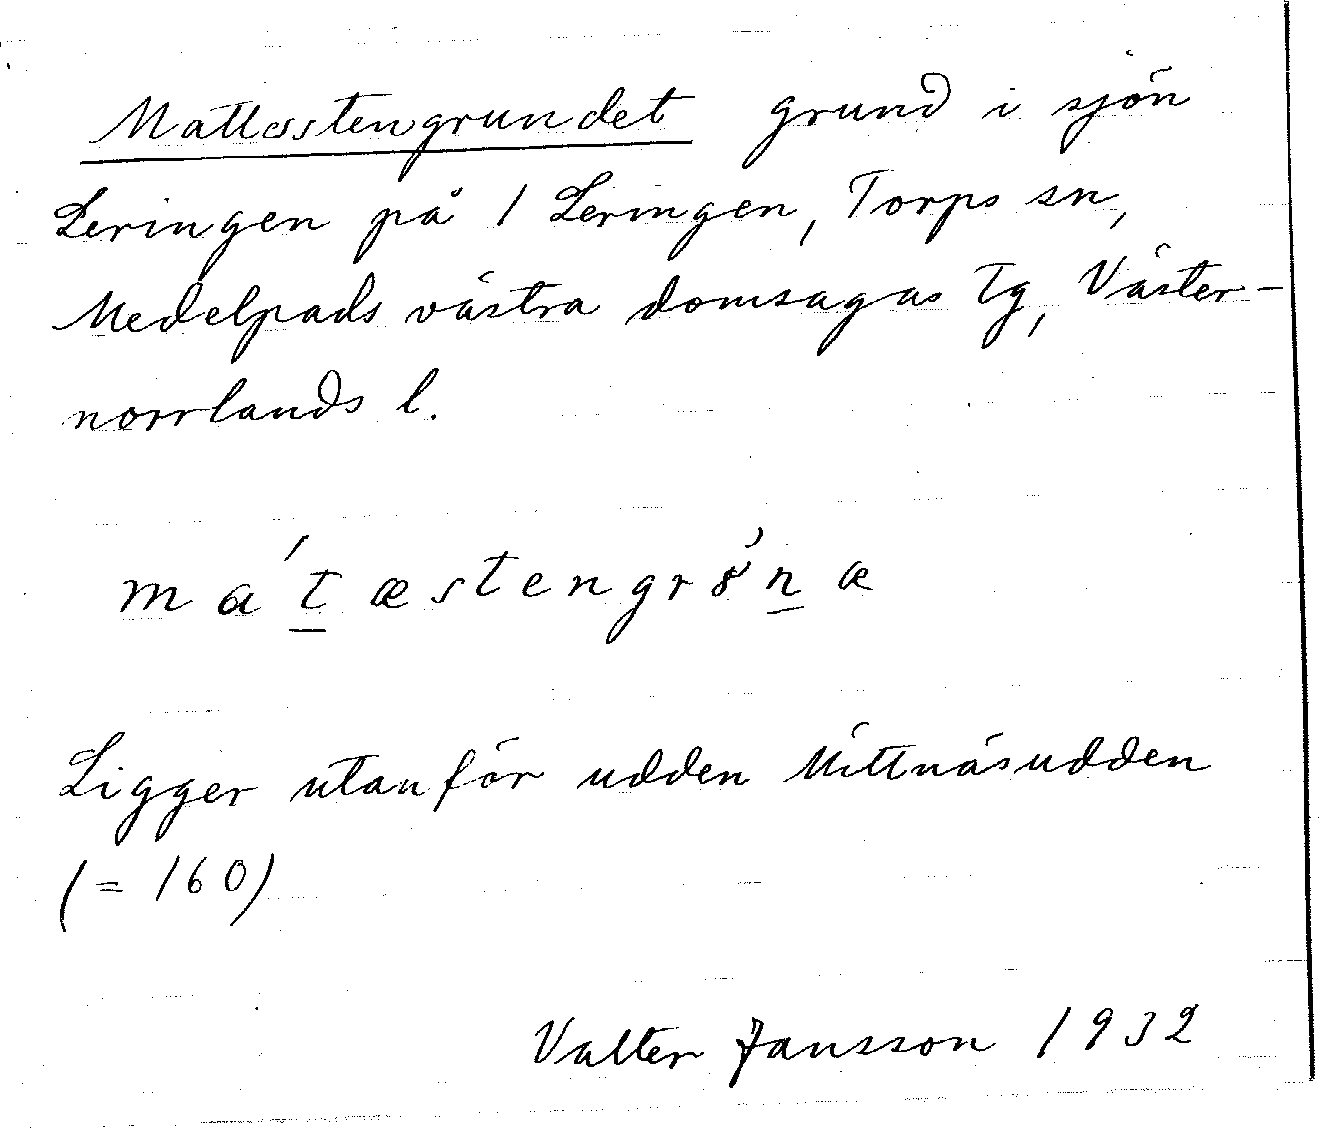 Mattesstengrundet grund i sjön
Leringen på 1 Leringen, Torps sn,
Medelpads västra domsagas tg, Väster-
norrlands l.
ma´t̲æstengrö´n̲a
Ligger utanför udden Mittnäsudden
(= 160)
Valter Jansson 1932